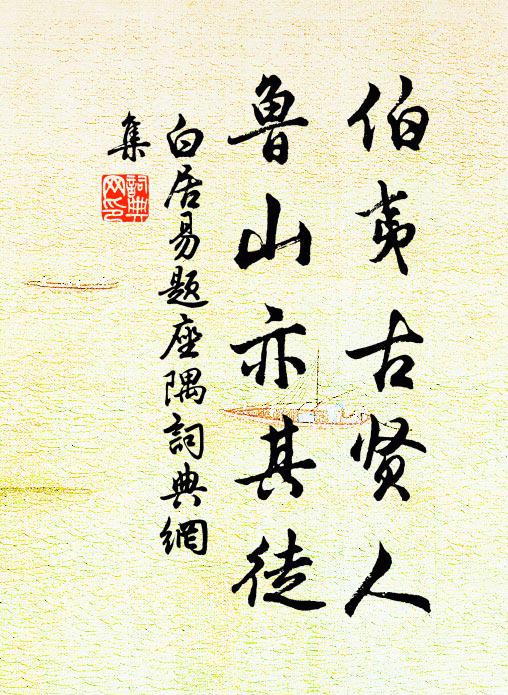 伯夷古贤人
鲁山亦其徒
白居易题座隅詞典網
集
詞典
网印